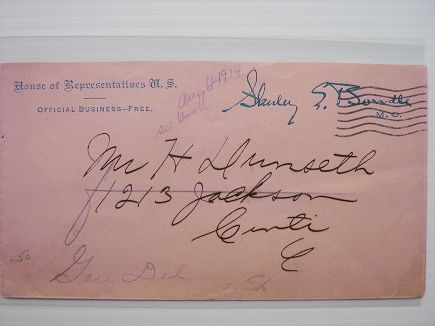 House of Representatives U. S.
OFFICIAL BUSINESS—FREE.
Aug 6 1914
see
Stanley E. Bowdle
M. C.
Mr H Dunseth
1213 Jackson
Cinti
O
.50
Gen Del